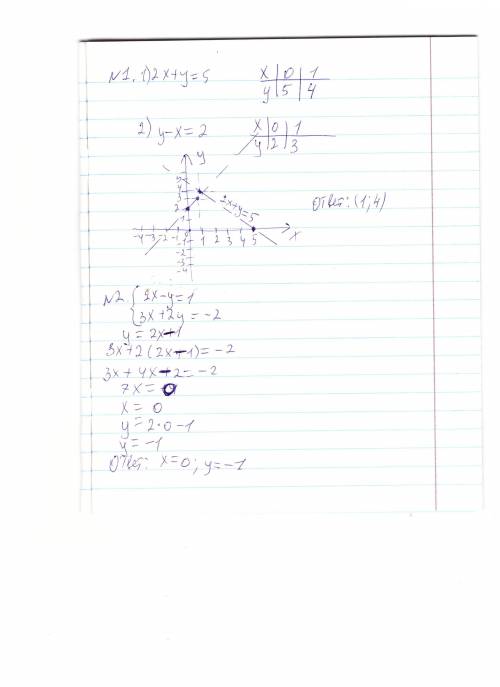 №1. 1) 2x+y=5
x | 0 | 1
y | 5 | 4
2) y-x=2
x | 0 | 1
y | 2 | 3
y
5
4
3
2
1
2x+y=5
-4 -3 -2 -1 0 1 2 3 4 5 x
-1
-2
-3
-4
Ответ: (1;4)
№2. { 2x-y=1
3x+2y=-2
y=2x-1
3x+2(2x-1)=-2
3x+4x-2=-2
7x=0
x=0
y=2·0-1
y=-1
Ответ: x=0; y=-1